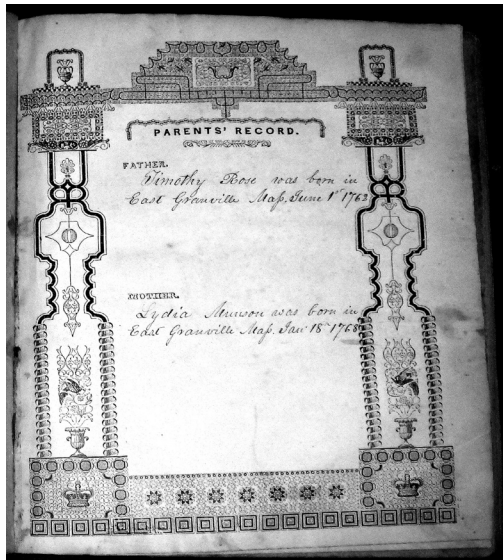 PARENTS' RECORD.
FATHER.
Timothy Rose was born in
East Granville Mass. June 1st 1762
MOTHER.
Lydia Munson was born in
East Granville Mass. Jan 18 1768